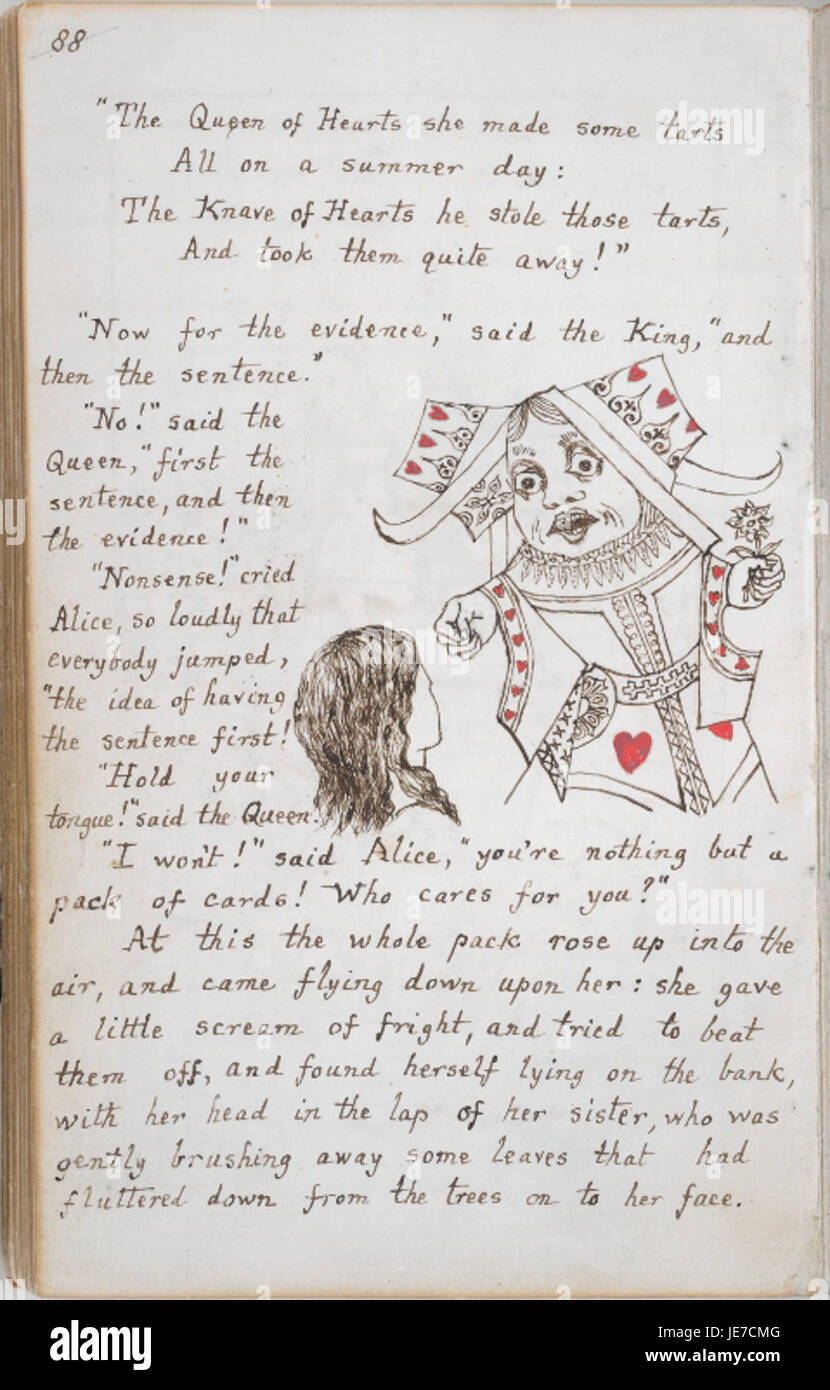 88
"The Queen of Hearts she made some tarts
All on a summer day:
The Knave of Hearts he stole those tarts,
And took them quite away!"
"Now for the evidence," said the King, "and
then the sentence."
"No!" said the
Queen, "first the
sentence, and then
the evidence!"
"Nonsense!" cried
Alice, so loudly that
everybody jumped,
"the idea of having
the sentence first!
"Hold your
tongue!" said the Queen.
"I won't!" said Alice, "you're nothing but a
pack of cards! Who cares for you?"
At this the whole pack rose up into the
air, and came flying down upon her: she gave
a little scream of fright, and tried to beat
them off, and found herself lying on the bank,
with her head in the lap of her sister, who was
gently brushing away some leaves that had
fluttered down from the trees on to her face.
alamy
alamy stock photo
JE7CMG
www.alamy.com